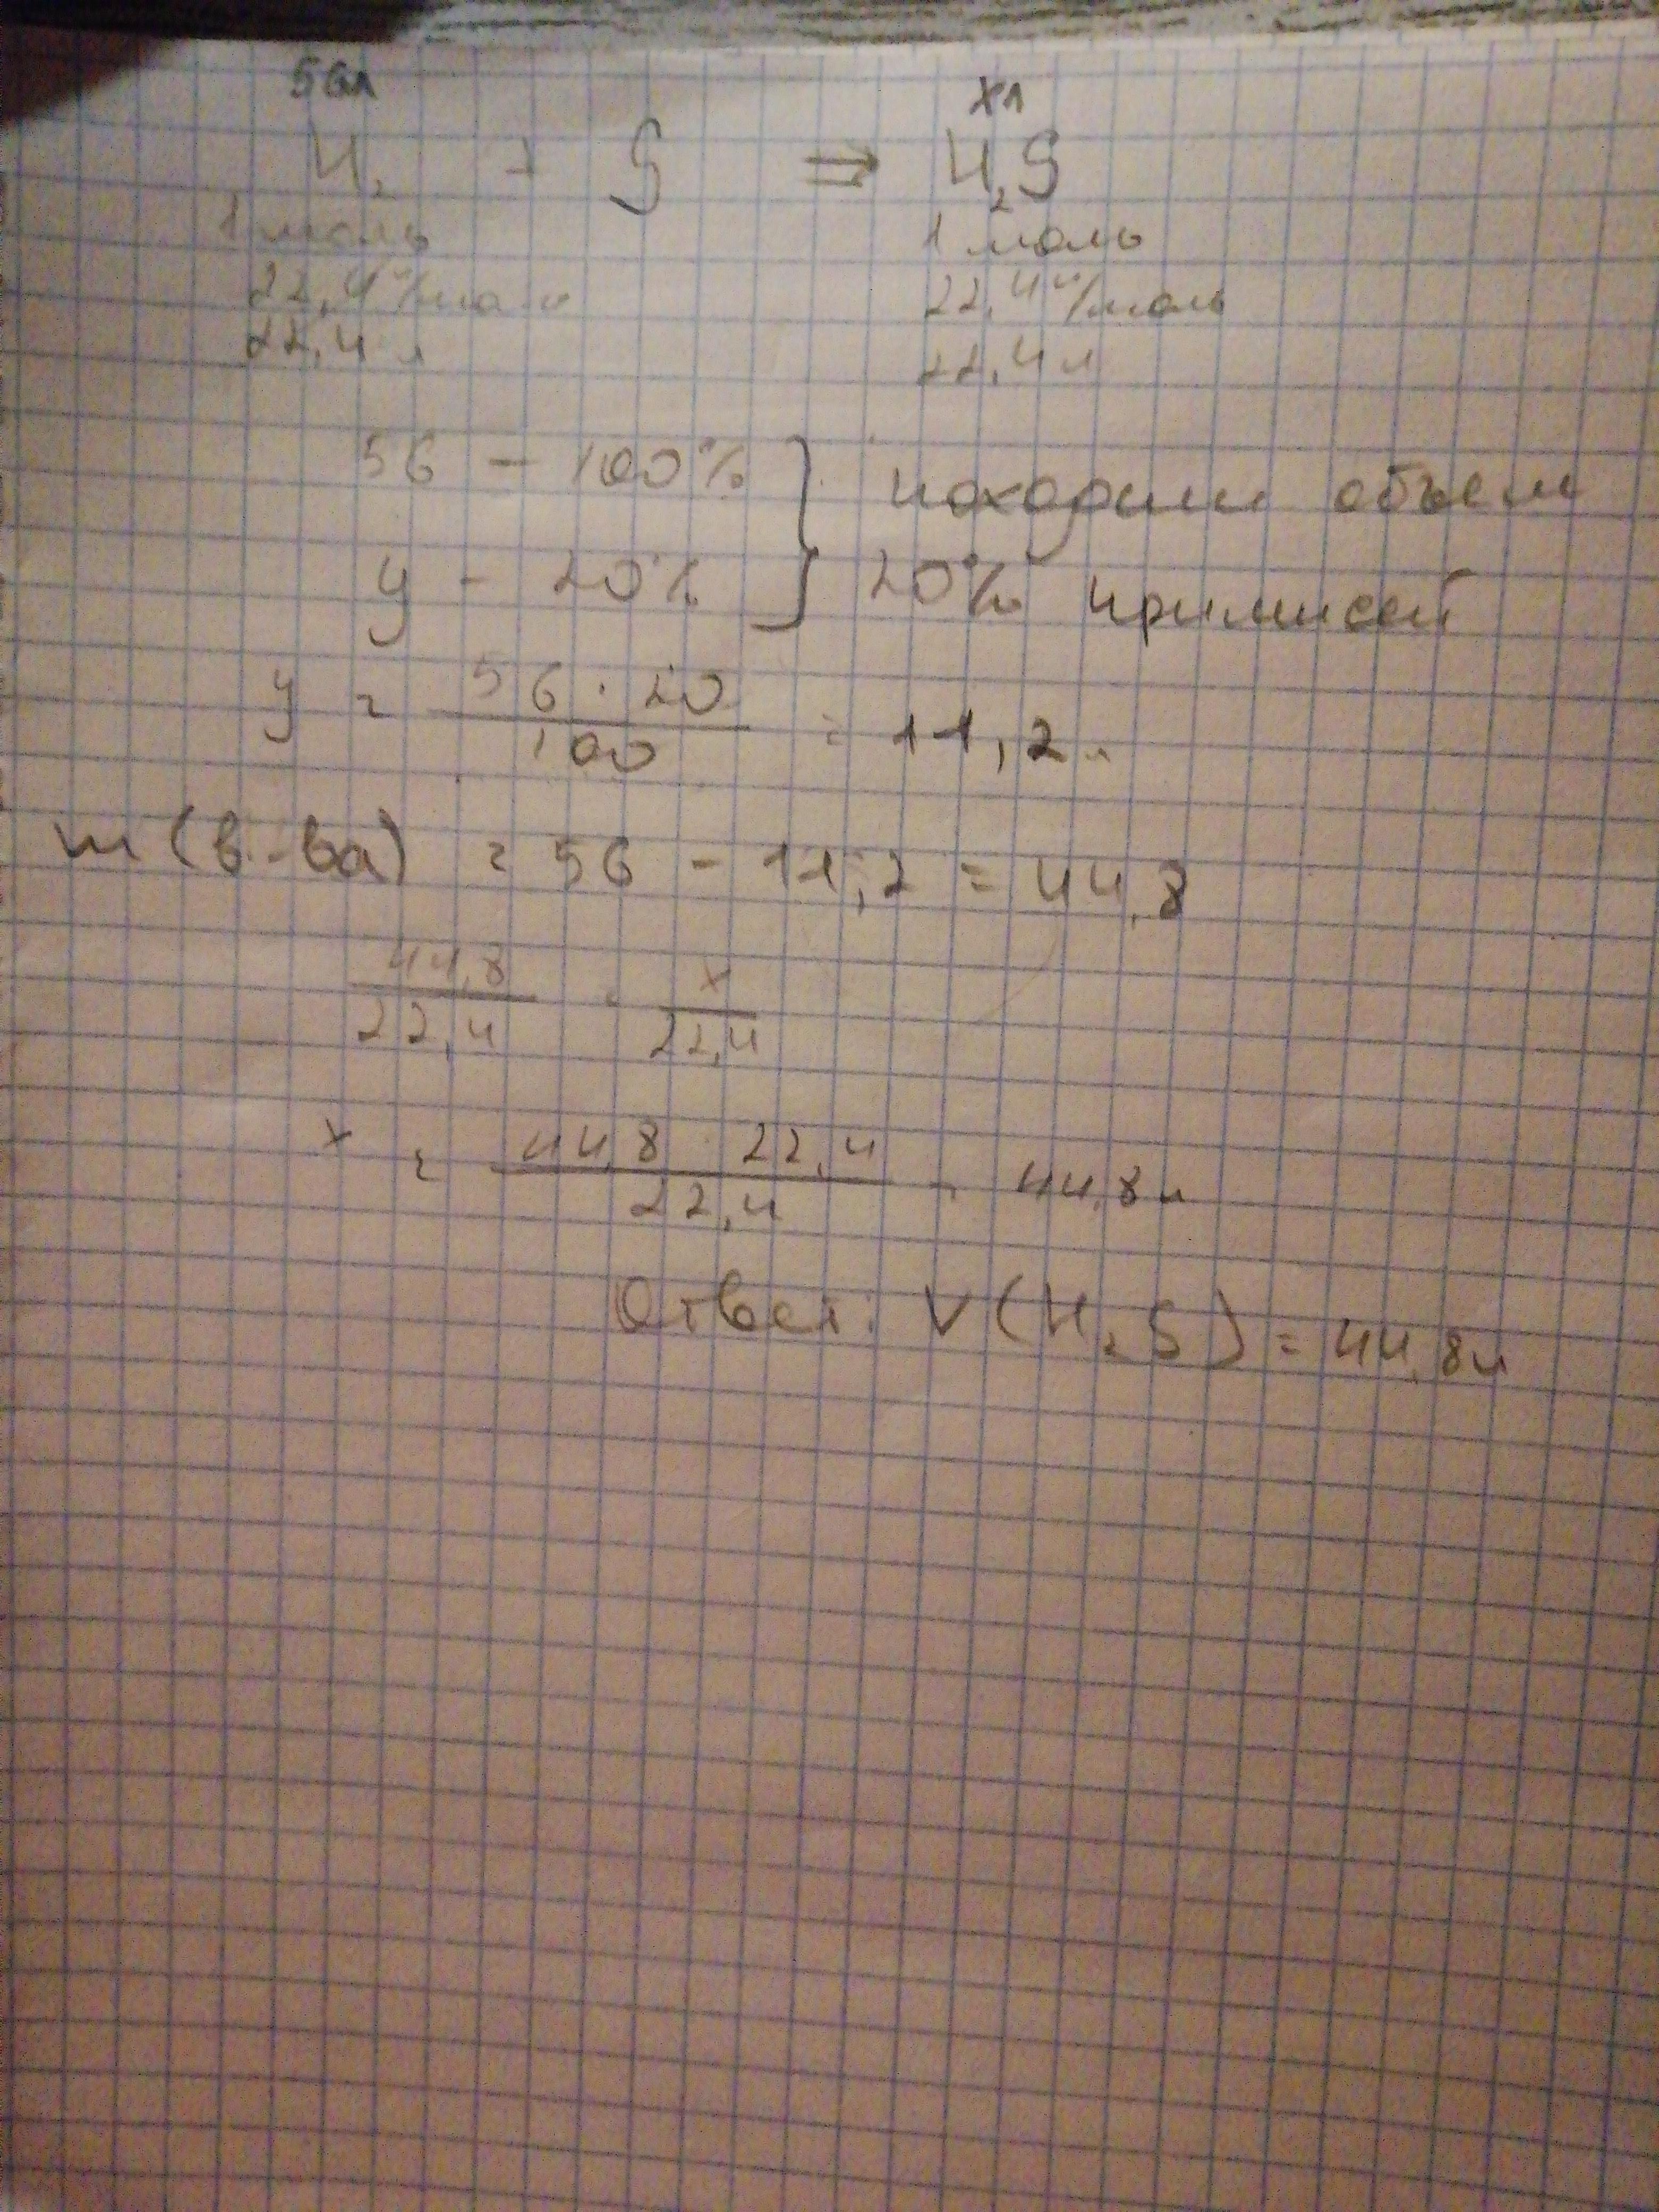 56л х л
H₂ + S ⇒ H₂S
1 моль 1 моль
22,4 л/моль 22,4 л/моль
22,4 л 22,4 л
56 - 100% } находим объем
y - 20% } 20% примисей
y = 56 · 20 / 100 = 11,2 л
m (в-ва) = 56 - 11,2 = 44,8
44,8 / 22,4 = x / 22,4
x = 44,8 · 22,4 / 22,4 = 44,8 л
Ответ: V(H₂S) = 44,8 л